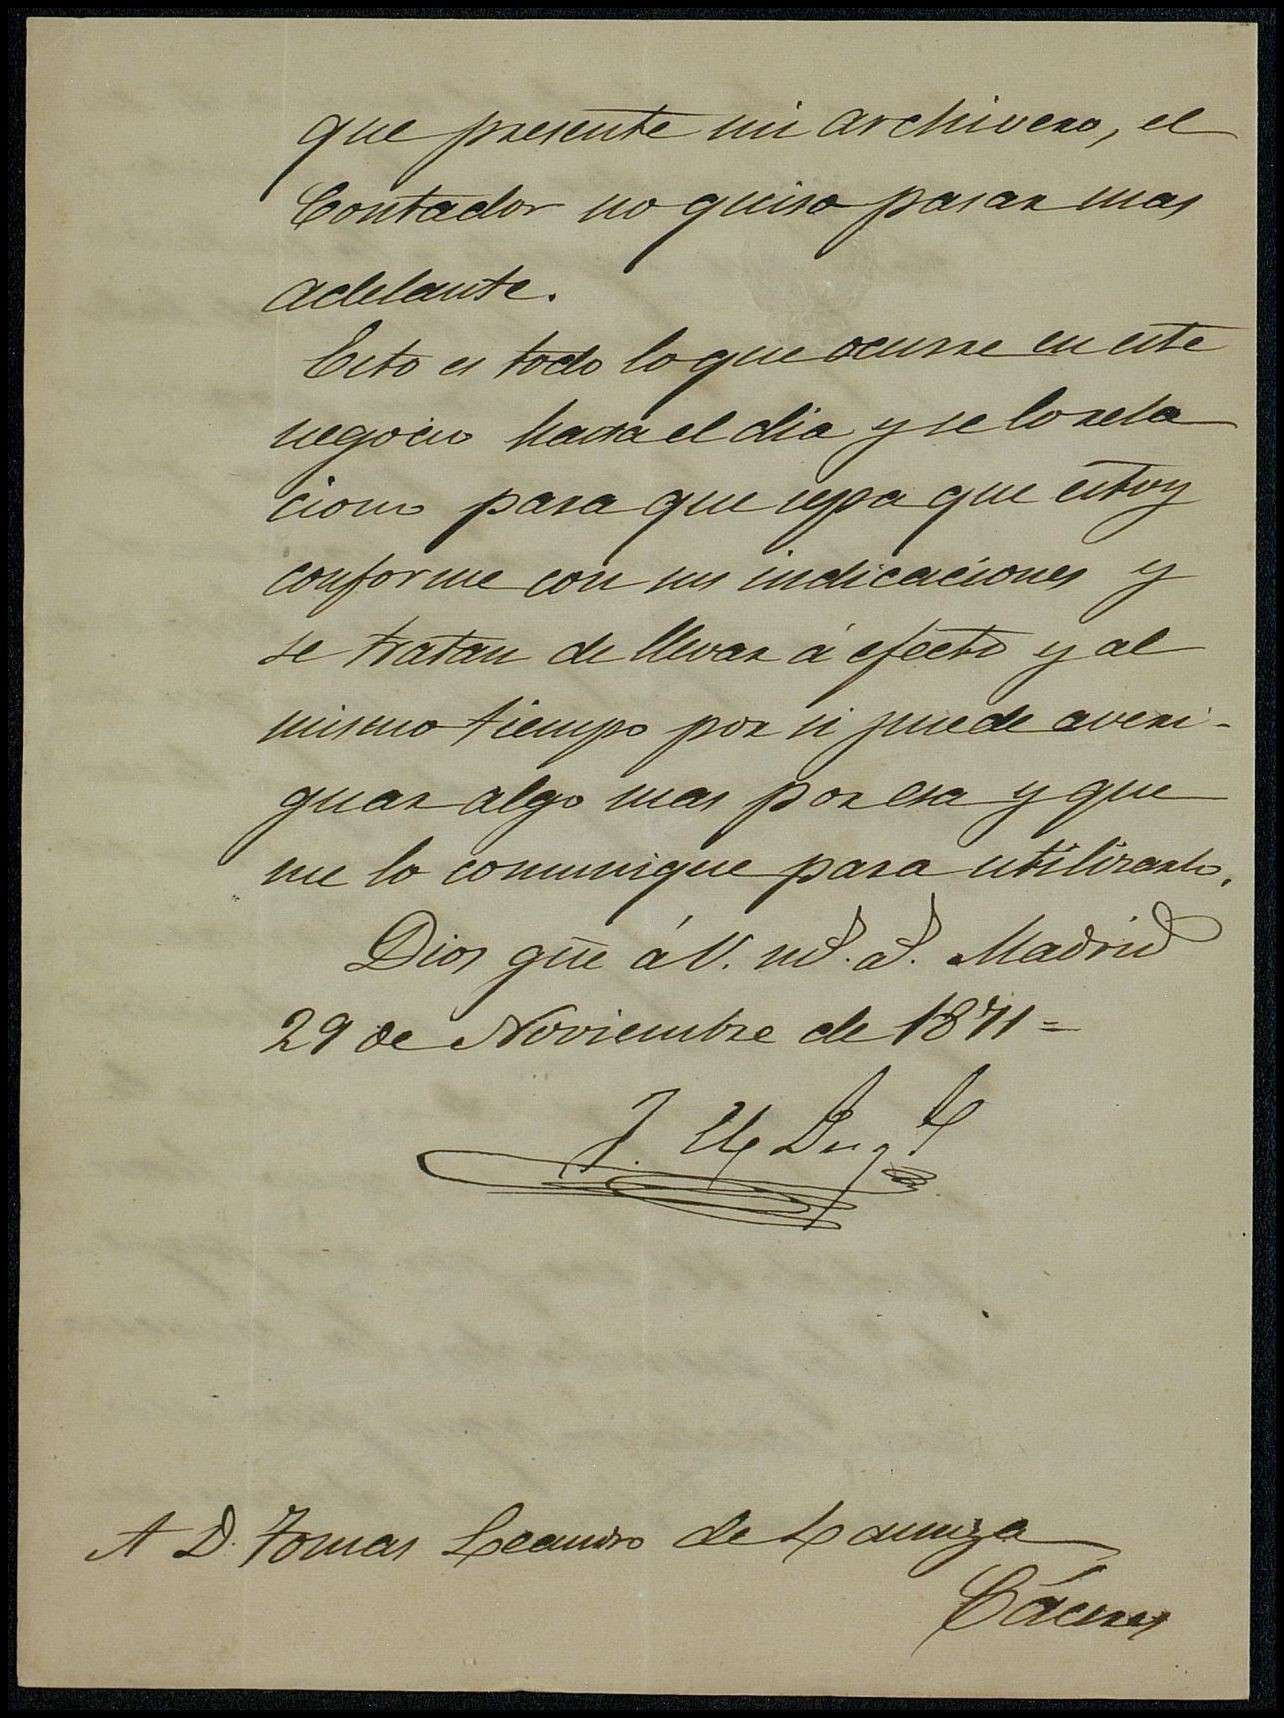 que presente mi archivero, el
Contador no quiso pasar mas
adelante.
Esto es todo lo que ocurre en este
negocio hasta el dia y se lo rela
ciono para que sepa que estoy
conforme con sus indicaciones y
se tratan de llevar á efecto y al
mismo tiempo por si puede averi-
guar algo mas por esa y que
me lo comunique para utilizarlo.
Dios gue á V. ms. as. Madrid
29 de Noviembre de 1871=
A D. Tomas Leandro de
Cáceres